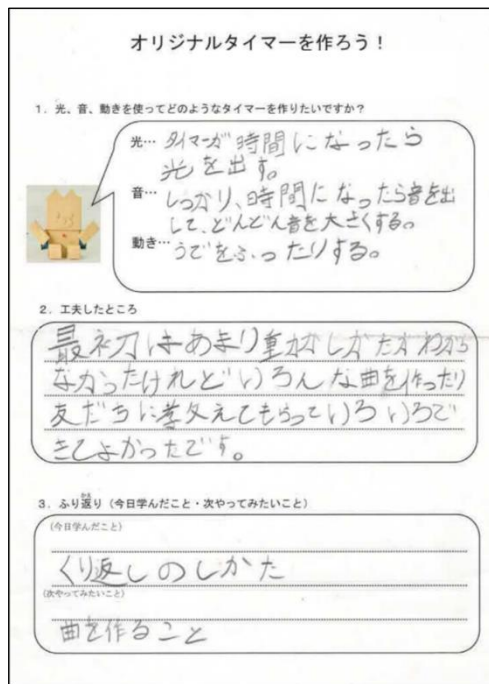 オリジナルタイマーを作ろう！
1．光、音、動きを使ってどのようなタイマーを作りたいですか？
光… タイマーが時間になったら
光を出す。
音… しっかり、時間になったら音を出
して、どんどん音を大きくする。
動き… うでをふったりする。
2．工夫したところ
最初はあまり動かしかたがわから
なかったけれどいろんな曲を作ったり
友だちに教えてもらっていろいろで
きてよかったです。
3．ふり返り（今日学んだこと・次やってみたいこと）
(今日学んだこと)
くり返しのしかた
(次やってみたいこと)
曲を作ること